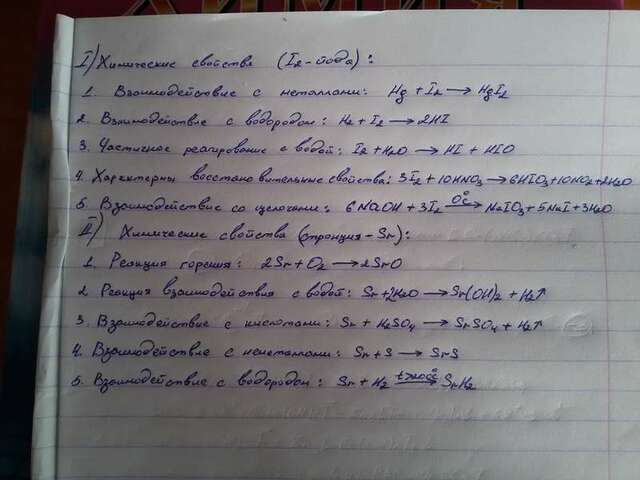 ХИМИЯ
I) Химические свойства (I₂ - йода):
1. Взаимодействие с металлами: Hg + I₂ → HgI₂
2. Взаимодействие с водородом: H₂ + I₂ → 2HI
3. Частичное реагирование с водой: I₂ + H₂O → HI + HIO
4. Характерны восстановительные свойства: 3I₂ + 10HNO₃ → 6HIO₃ + 10NO₂ + 2H₂O
5. Взаимодействие со щелочами: 6NaOH + 3I₂ 0°C→ NaIO₃ + 5NaI + 3H₂O
II) Химические свойства (стронция - Sr):
1. Реакция горения: 2Sr + O₂ → 2SrO
2. Реакция взаимодействия с водой: Sr + 2H₂O → Sr(OH)₂ + H₂↑
3. Взаимодействие с кислотами: Sr + H₂SO₄ → SrSO₄ + H₂↑
4. Взаимодействие с неметаллами: Sr + S → SrS
5. Взаимодействие с водородом: Sr + H₂ → SrH₂